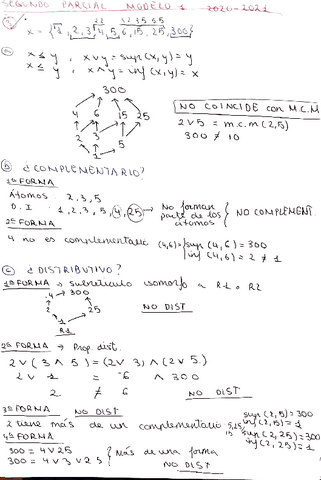 SEGUNDO PARCIAL MODELO 1 2020-2021
x = {1, 2, 3, 4, 5, 6, 15, 25, 300}
a
x ≤ y , x ∨ y = sup(x, y) = y
x ≤ y , x ∧ y = inf(x, y) = x
300
4 6 15 25
2 3 5
1
NO COINCIDE con M.C.M
2 ∨ 5 = m.c.m (2, 5)
300 ≠ 10
b ¿COMPLEMENTARIO?
1ª FORMA
Átomos 2, 3, 5
D.I. 1, 2, 3, 5, 4, 25 → No forman parte de los átomos } NO COMPLEMENT.
2ª FORMA
4 no es complementario (4,6) = sup(4, 6) = 300
inf(4, 6) = 2 ≠ 1
c ¿DISTRIBUTIVO?
1ª FORMA → subretículo isomorfo a R1 o R2
4 → 300
2 25
1
R1
NO DIST
2ª FORMA → Prop. dist.
2 ∨ (3 ∧ 5) = (2 ∨ 3) ∧ (2 ∨ 5)
2 ∨ 1 = 6 ∧ 300
2 ≠ 6 NO DIST
3ª FORMA NO DIST
2 tiene más de un complementario 5, 25, 15
sup(2, 5) = 300
inf(2, 5) = 1
sup(2, 25) = 300
inf(2, 25) = 1
4ª FORMA
300 = 4 ∨ 25
300 = 4 ∨ 3 ∨ 25 } Más de una forma
NO DIST